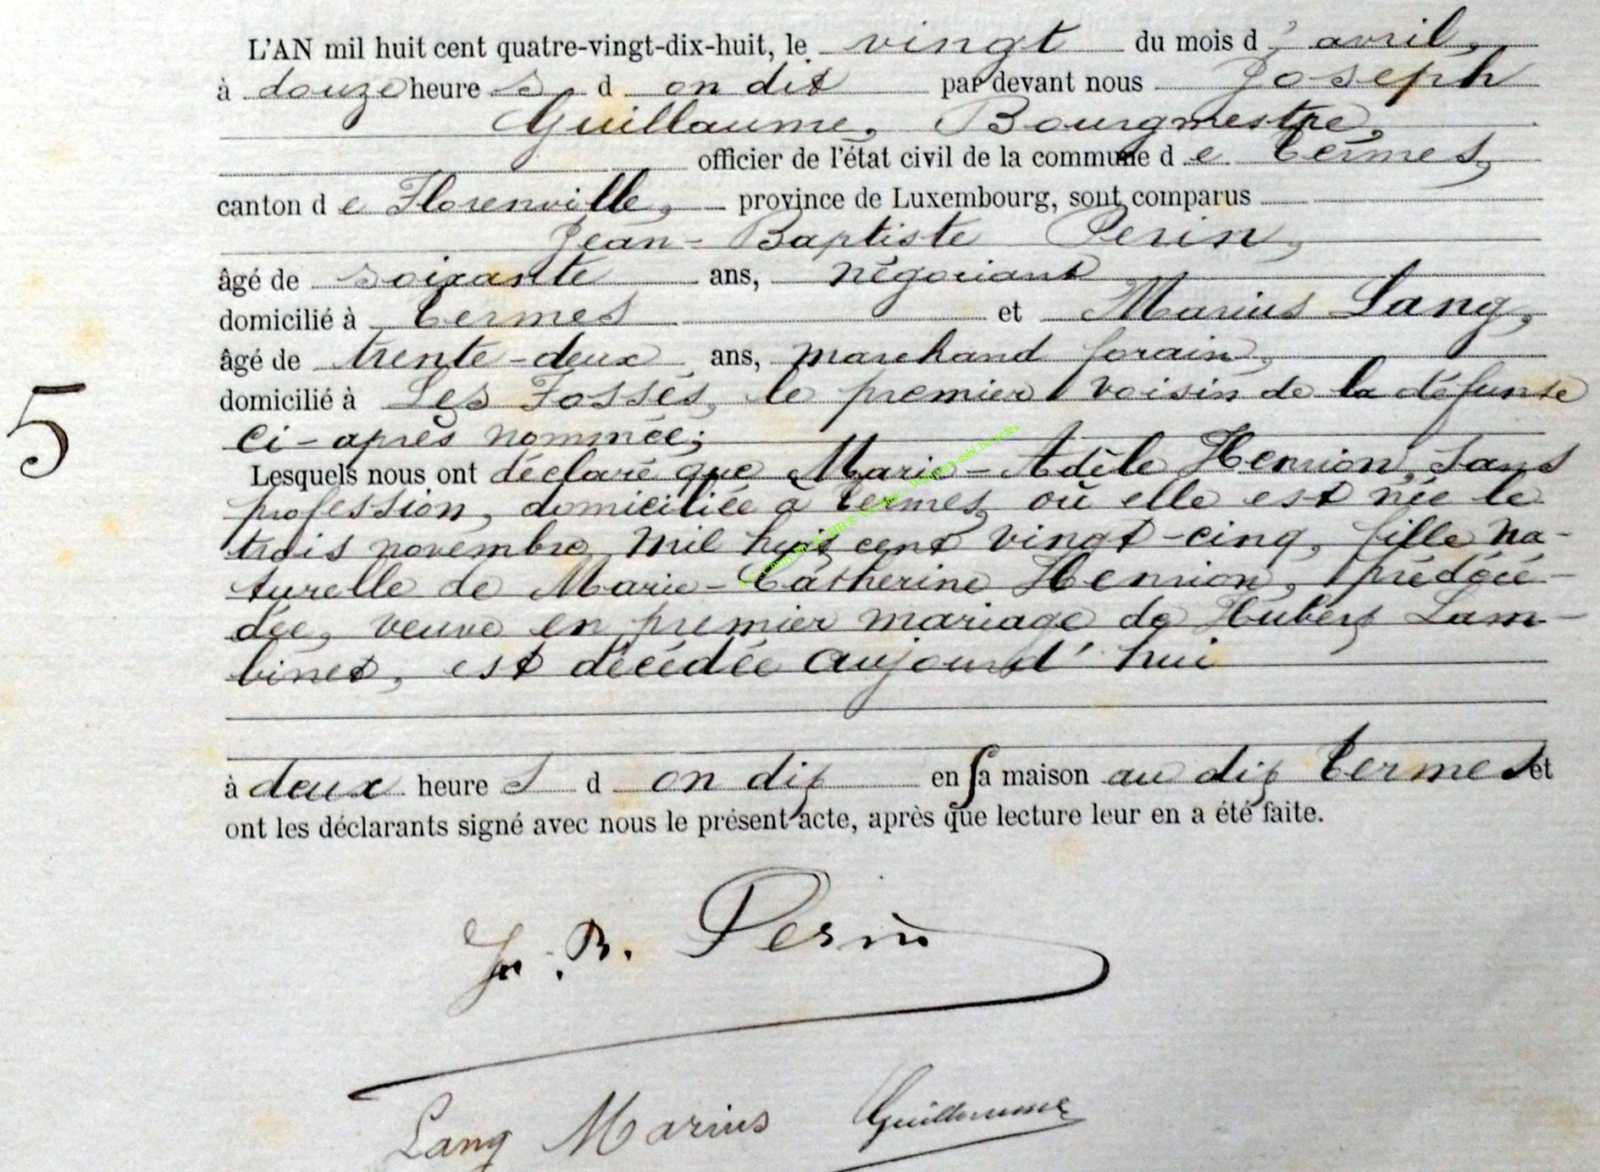 L'AN mil huit cent quatre-vingt-dix-huit, le vingt du mois d'avril,
à douze heures d on dit par devant nous Joseph
Guillaume, Bourgmestre,
officier de l'état civil de la commune de Termes,
canton de Florenville, province de Luxembourg, sont comparus
Jean-Baptiste Perin,
âgé de soixante ans, négociant
domicilié à Termes et Marius Lang,
âgé de trente-deux ans, marchand forain,
domicilié à Les Fossés, le premier voisin de la défunte
5
ci-après nommée;
Lesquels nous ont déclaré que Marie-Adèle Henrion, sans
profession, domiciliée à Termes, où elle est née le
trois novembre mil huit cent vingt-cinq, fille na-
turelle de Marie-Catherine Henrion, prédécé-
dée, veuve en premier mariage de Hubert Lam-
binet, est décédée aujourd'hui
à deux heures d on dit en sa maison au dit Termes et
ont les déclarants signé avec nous le présent acte, après que lecture leur en a été faite.
J. B. Perin
Lang Marius Guillaume